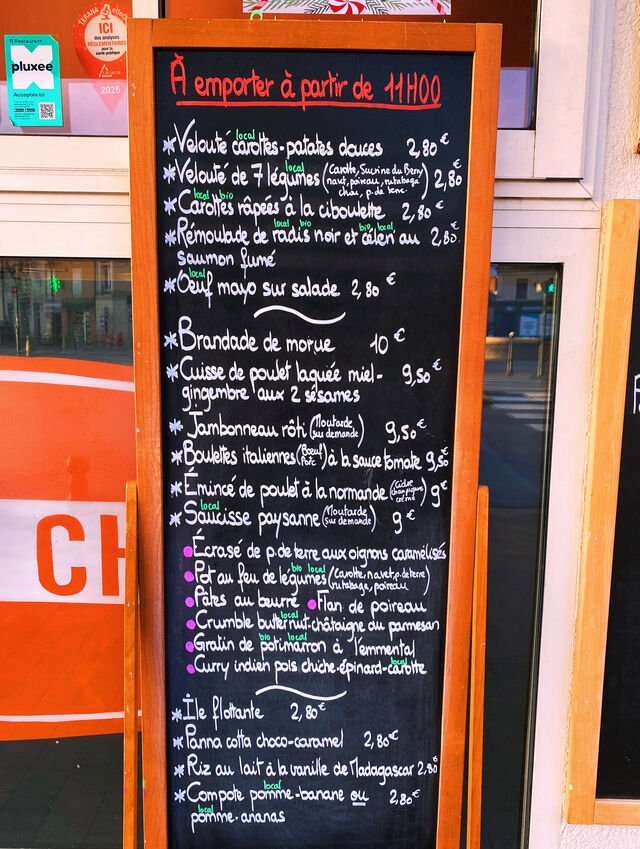 R Restaurant
pluxee
Acceptés ici
ICI
des analyses
RÉGLEMENTAIRES
pour la
santé publique
2025
À emporter à partir de 11H00
* Velouté carottes-patates douces 2,80€
local
* Velouté de 7 légumes (Carotte, Sucrine du Berry 2,80€
local
navet, poireau, rutabaga
chou, p. de terre)
local bio
* Carottes râpées à la ciboulette 2,80€
local bio bio local
* Rémoulade de radis noir et céleri au 2,80
saumon fumé
local
* Oeuf mayo sur salade 2,80€
* Brandade de morue 10€
* Cuisse de poulet laquée miel- 9,50€
gingembre aux 2 sésames
* Jambonneau rôti (Moutarde sur demande) 9,50€
* Boulettes italiennes (Bœuf Porc) à la sauce tomate 9,50€
* Émincé de poulet à la normande (Cidre champignons crème) 9€
local
* Saucisse paysanne (Moutarde sur demande) 9€
• Écrasé de p. de terre aux oignons caramélisés
bio local
• Pot au feu de légumes (carotte, navet, p. de terre
rutabaga, poireau)
• Pâtes au beurre • Flan de poireau
local
• Crumble butternut-châtaigne du parmesan
bio local
• Gratin de potimarron à l'emmental
local
• Curry indien pois chiche-épinard-carotte
* Île flottante 2,80€
* Panna cotta choco-caramel 2,80€
* Riz au lait à la vanille de Madagascar 2,80€
local
* Compote pomme-banane ou 2,80€
local
pomme-ananas
CH